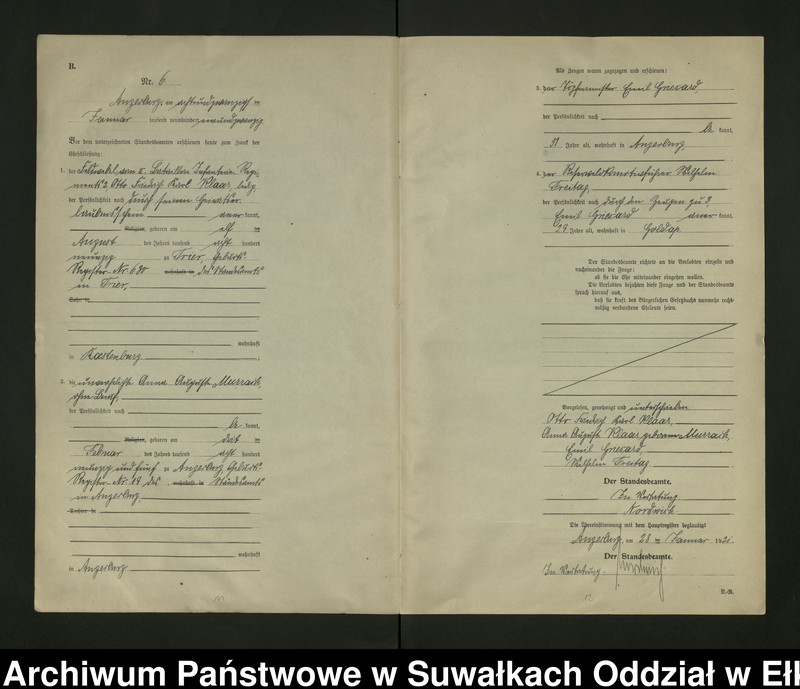 B.
Nr. 6
Angerburg, am achtundzwanzigsten
Januar tausend neunhundert einundzwanzig
Vor dem unterzeichneten Standesbeamten erschienen heute zum Zweck der
Eheschließung:
1. der Feldwebel vom 2. Bataillon Infanterie Regi-
ments 2, Otto Friedrich Karl Klaar, ledig
der Persönlichkeit nach durch seinen
laubnisschein anerkannt,
Religion, geboren am elf ten
August des Jahres tausend acht hundert
neunzig zu Trier, Geburts-
Register-Nr. 680 wohnhaft in des Standesamts
in Trier,
wohnhaft
in Rastenburg
2. die unverehelichte Anna Auguste Murrach
ohne Beruf,
der Persönlichkeit nach
be kannt,
Religion, geboren am
Februar des Jahres tausend acht hundert
neunzig und fünf zu Angerburg Geburts-
Register-Nr. 18 des wohnhaft in Standesamts
in Angerburg,
Tochter de
wohnhaft
in Angerburg
Als Zeugen waren zugezogen und erschienen:
3. der Töpfermeister Emil Grievard
der Persönlichkeit nach
be kannt,
51 Jahre alt, wohnhaft in Angerburg,
4. der Wilhelm
Freitag,
der Persönlichkeit nach durch den Zeugen zu 3,
Emil Grievard anerkannt,
29 Jahre alt, wohnhaft in Goldap.
Der Standesbeamte richtete an die Verlobten einzeln und
nacheinander die Frage:
ob sie die Ehe miteinander eingehen wollen.
Die Verlobten bejahten diese Frage und der Standesbeamte
sprach hierauf aus,
daß sie kraft des Bürgerlichen Gesetzbuchs nunmehr recht-
mäßig verbundene Eheleute seien.
Vorgelesen, genehmigt und unterschrieben
Otto Friedrich Karl Klaar,
Anna Auguste Klaar geborene Murrach,
Emil Grievard,
Wilhelm Freitag
Der Standesbeamte.
In Vertretung
Nordwich
Die Übereinstimmung mit dem Hauptregister beglaubigt
Angerburg, am 28 ten Januar 1921.
Der Standesbeamte.
In Vertretung
11
12
Archiwum Państwowe w Suwałkach Oddział w Ełk